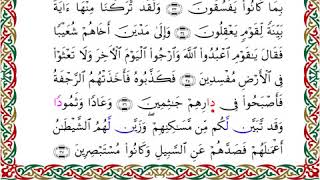 بِمَا كَانُوا۟ يَفْسُقُونَ ۝ وَلَقَد تَّرَكْنَا مِنْهَآ ءَايَةًۢ
بَيِّنَةً لِّقَوْمٍ يَعْقِلُونَ ۝ وَإِلَىٰ مَدْيَنَ أَخَاهُمْ شُعَيْبًا
فَقَالَ يَـٰقَوْمِ ٱعْبُدُوا۟ ٱللَّهَ وَٱرْجُوا۟ ٱلْيَوْمَ ٱلْـَٔاخِرَ وَلَا تَعْثَوْا۟
فِى ٱلْأَرْضِ مُفْسِدِينَ ۝ فَكَذَّبُوهُ فَأَخَذَتْهُمُ ٱلرَّجْفَةُ
فَأَصْبَحُوا۟ فِى دَارِهِمْ جَـٰثِمِينَ ۝ وَعَادًا وَثَمُودَا۟
وَقَد تَّبَيَّنَ لَكُم مِّن مَّسَـٰكِنِهِمْ ۖ وَزَيَّنَ لَهُمُ ٱلشَّيْطَـٰنُ
أَعْمَـٰلَهُمْ فَصَدَّهُمْ عَنِ ٱلسَّبِيلِ وَكَانُوا۟ مُسْتَبْصِرِينَ ۝